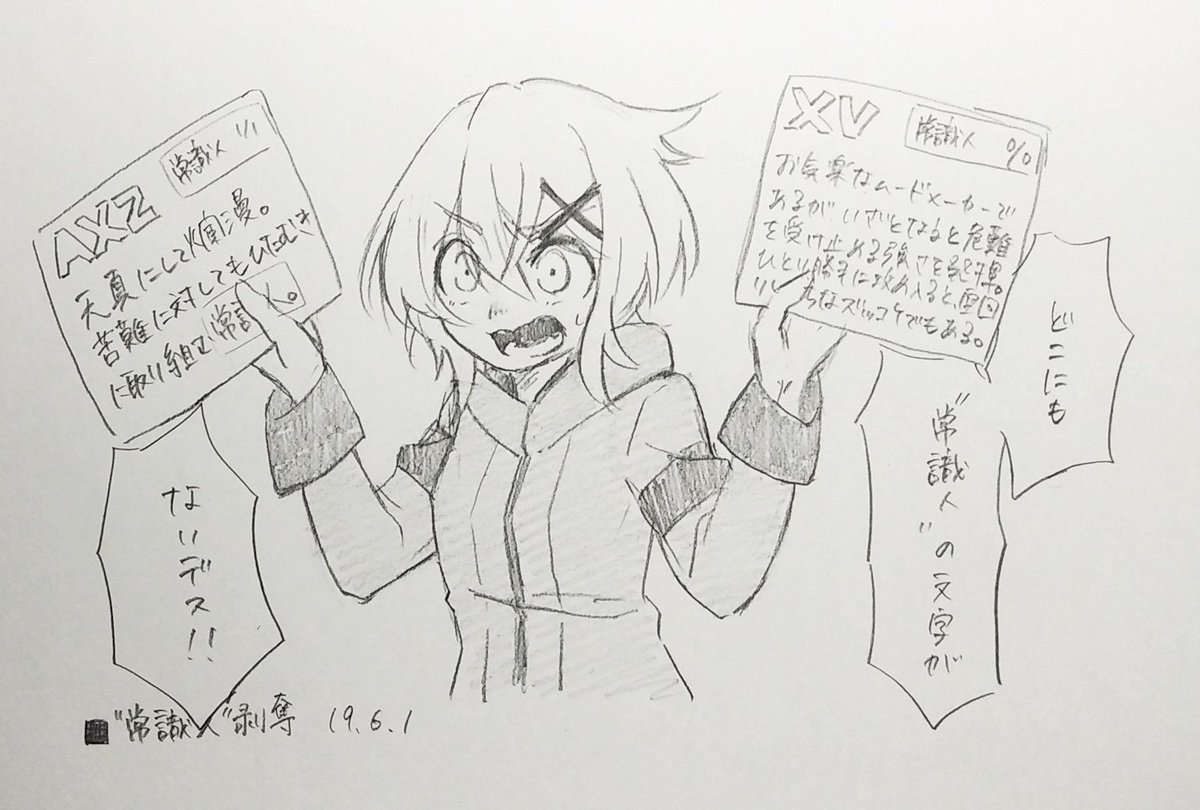 どこにも
"常識人"の文字が
XV
常識人 0/0
お気楽なムードメーカーで
あるが、いざとなると危難
を受け止める強さを発揮。
ひとり勝手に攻め入ると、毎回
なズッコケでもある。
AXZ
常識人 1/1
天真にして爛漫。
苦難に対してもひたむき
に取り組む常識人。
ないデス!!
■"常識人"剥奪 19.6.1